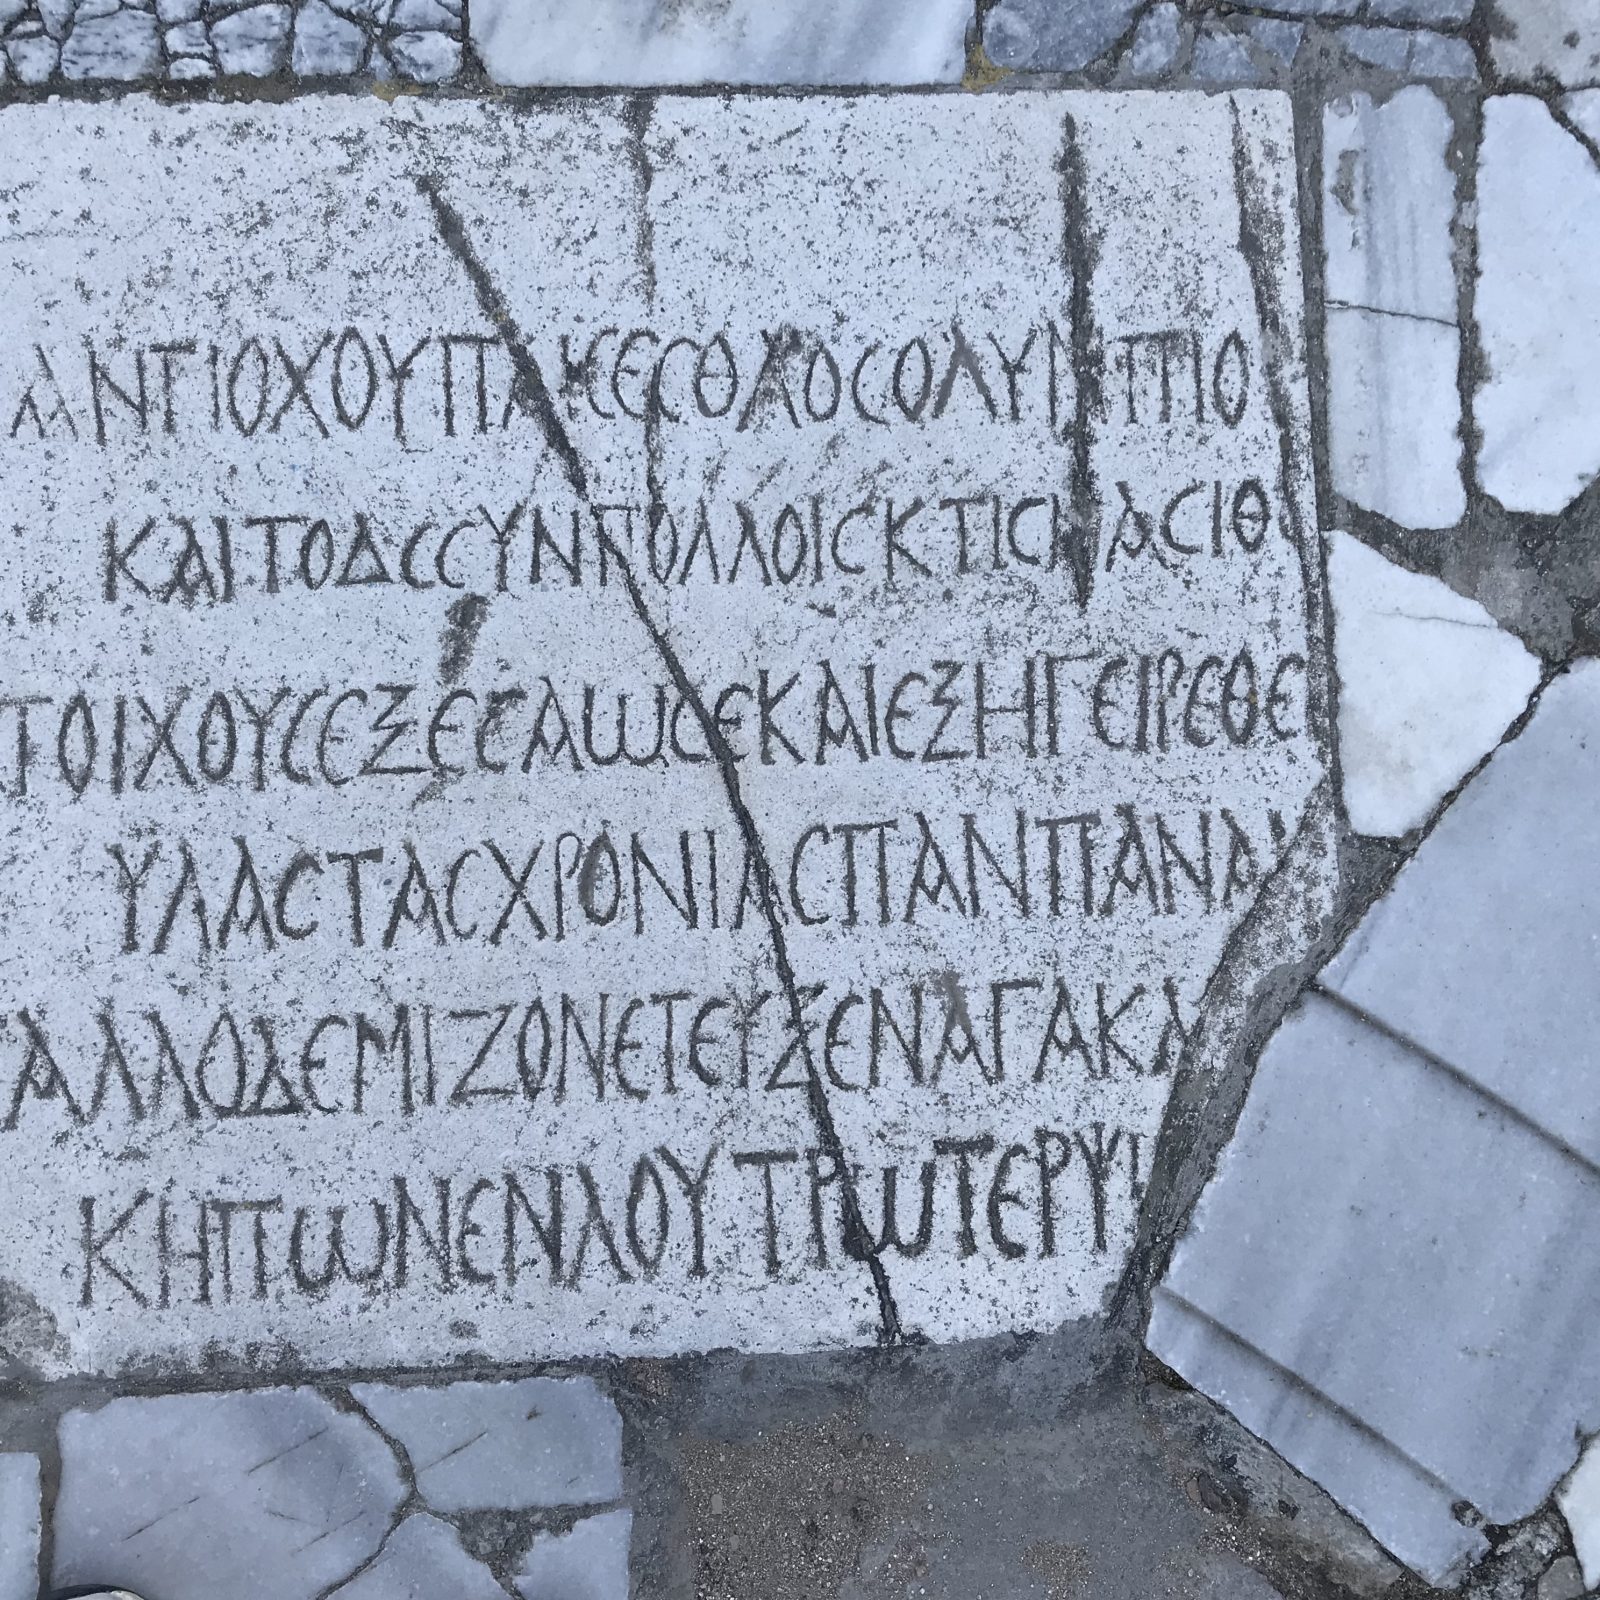 ΑΝΤΙΟΧΟΥΠΑΚΕΕϹΘΛΟϹΟΛΥΜΠΙΟ
ΚΑΙΤΟΔΕϹΥΝΠΟΛΛΟΙϹΚΤΙϹΜΑϹΙΘ
ΤΟΙΧΟΥϹΕΞΕϹΑΩϹΕΚΑΙΕΞΗΓΕΙΡΕΘΕ
ΥΛΑϹΤΑϹΧΡΟΝΙΑϹΠΑΝΠΑΝΑ
ΑΛΛΟΔΕΜΙΖΟΝΕΤΕΥΞΕΝΑΓΑΚΛ
ΚΗΠΩΝΕΝΛΟΥΤΡΩΤΕΡΨΙ